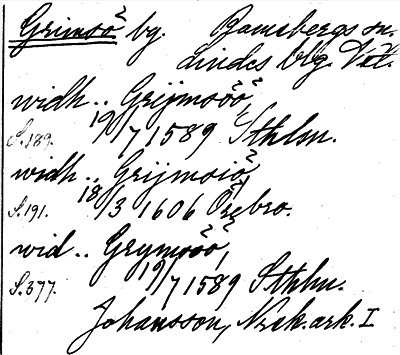 Grimsö by. Ramsbergs sn.
Lindes blg. Vstl.
widh .. Grijmsöö,
S. 189. 19/7 1589 Sthlm.
widh .. Grijmsiö,
S. 191. 18/3 1606 Örebro.
wid .. Grymsöö,
S. 377. 19/7 1589 Sthlm.
Johansson, Nrek. ark. I